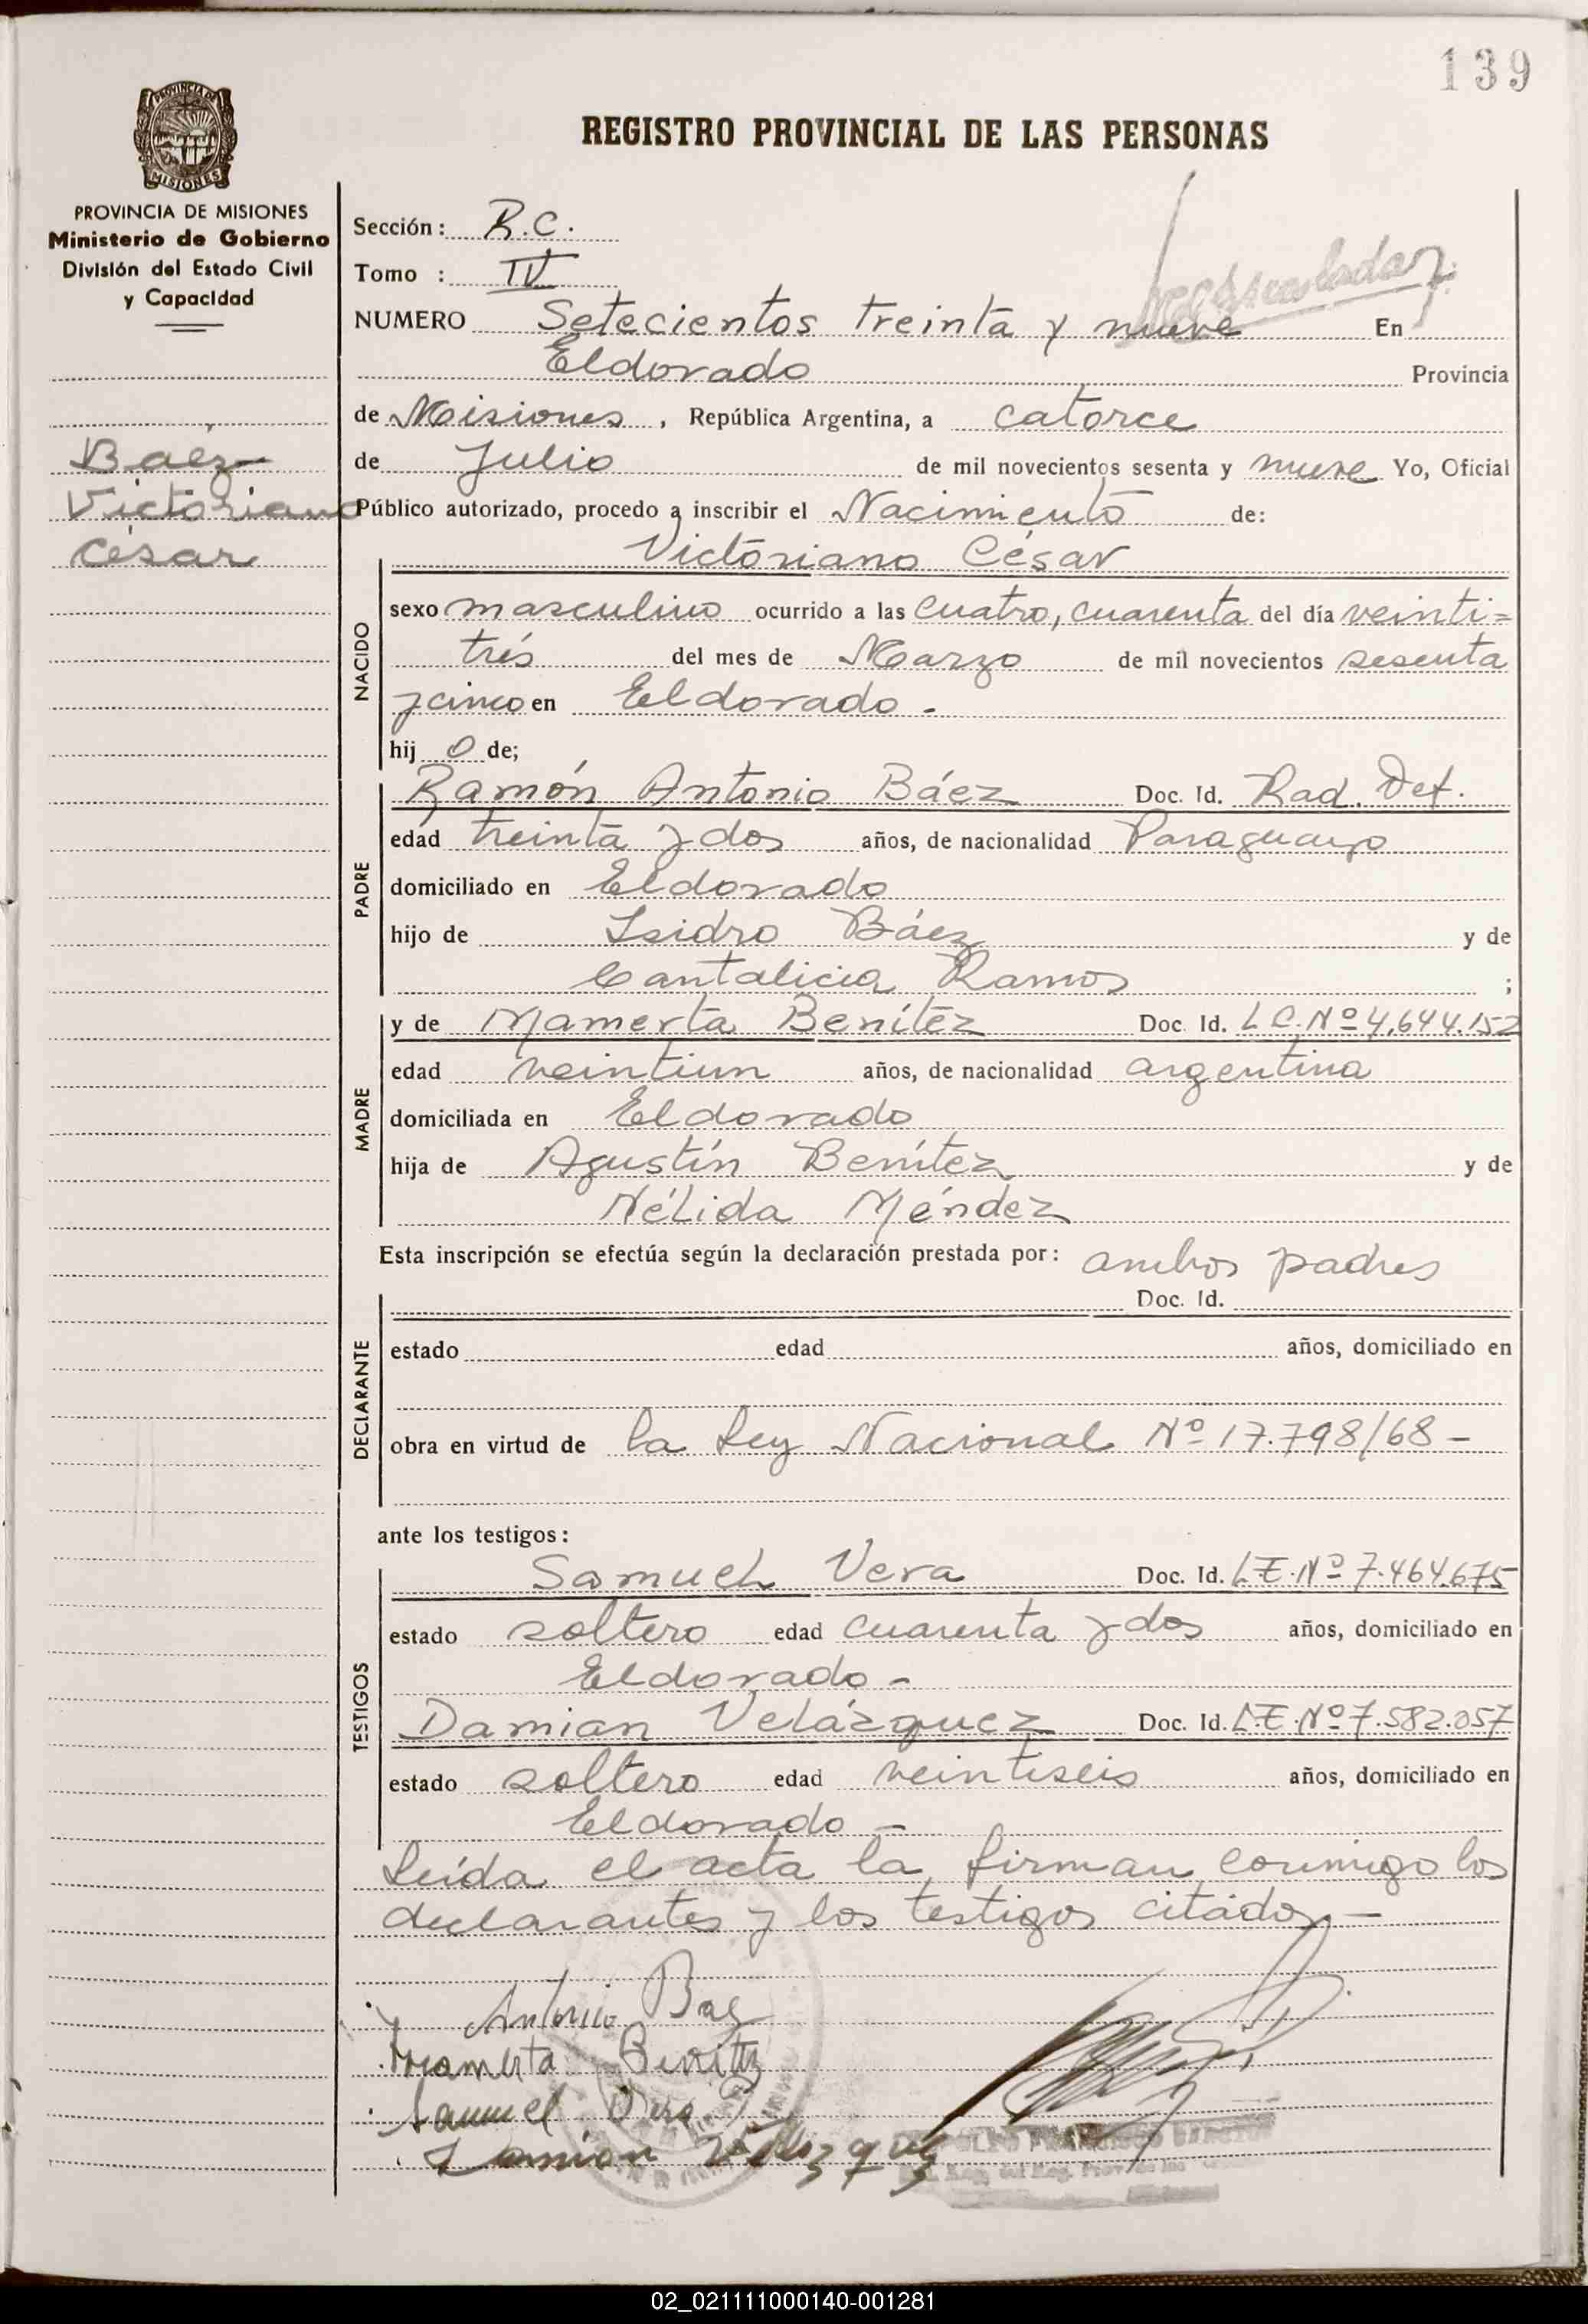 139
PROVINCIA DE
MISIONES
REGISTRO PROVINCIAL DE LAS PERSONAS
PROVINCIA DE MISIONES
Ministerio de Gobierno
División del Estado Civil
y Capacidad
Baéz
Victoriano
César
Sección: R.C.
Tomo : IV
NUMERO Setecientos treinta y nueve En
Eldorado Provincia
de Misiones, República Argentina, a catorce
de Julio de mil novecientos sesenta y nueve Yo, Oficial
Público autorizado, procedo a inscribir el Nacimiento de:
Victoriano César
NACIDO
sexo masculino ocurrido a las cuatro, cuarenta del día veinti=
trés del mes de Marzo de mil novecientos sesenta
y cinco en Eldorado.-
hij o de;
PADRE
Ramón Antonio Báez Doc. Id. Rad. Def.
edad treinta y dos años, de nacionalidad Paraguayo
domiciliado en Eldorado
hijo de Isidro Báez y de
Cantalicia Ramos ;
MADRE
y de Mamerta Benítez Doc. Id. L C. Nº 4.644.152
edad veintiun años, de nacionalidad argentina
domiciliada en Eldorado
hija de Agustín Benítez y de
Nélida Méndez
Esta inscripción se efectúa según la declaración prestada por: ambos padres
DECLARANTE
Doc. Id.
estado edad años, domiciliado en
obra en virtud de la Ley Nacional Nº 17.798/68-
ante los testigos:
TESTIGOS
Samuel Vera Doc. Id. L.E.Nº 7.464.675
estado soltero edad cuarenta y dos años, domiciliado en
Eldorado-
Damian Velázquez Doc. Id. L.E.Nº 7.582.057
estado soltero edad veintiseis años, domiciliado en
Eldorado-
Leída el acta la firman conmigo los
declarantes y los testigos citados.-
Antonio Baez
Mamerta Benittez
Samuel Vera
Damian Velazquez
02_021111000140-001281